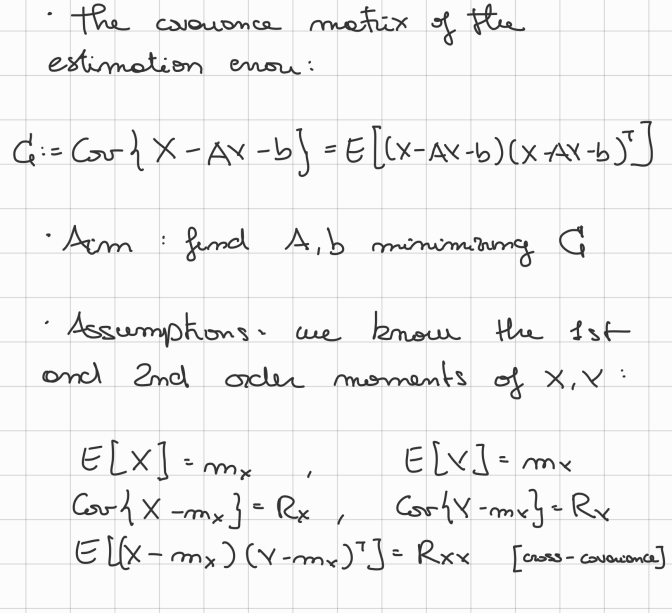 · the covariance matrix of the
estimation error:
G := Cov{X - AY - b} = E[(X-AY-b)(X-AY-b)^T]
· Aim : find A, b minimizing G
· Assumptions. we know the 1st
and 2nd order moments of X, Y :
E[X] = m_X , E[Y] = m_Y
Cov{X - m_X} = R_X , Cov{Y - m_Y} = R_Y
E[(X - m_X)(Y - m_Y)^T] = R_XY [cross-covariance]